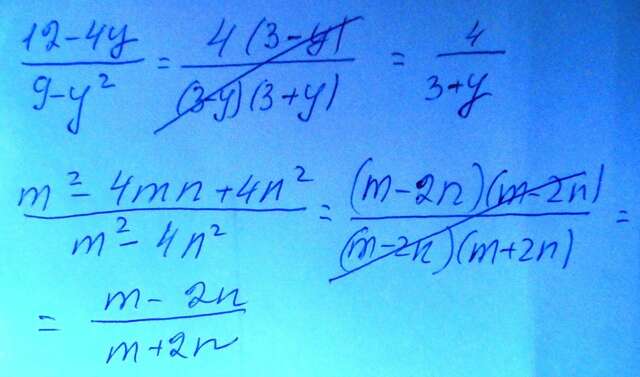 12-4y/9-y² = 4(3-y)/(3-y)(3+y) = 4/3+y
m²-4mn+4n²/m²-4n² = (m-2n)(m-2n)/(m-2n)(m+2n) =
= m-2n/m+2n